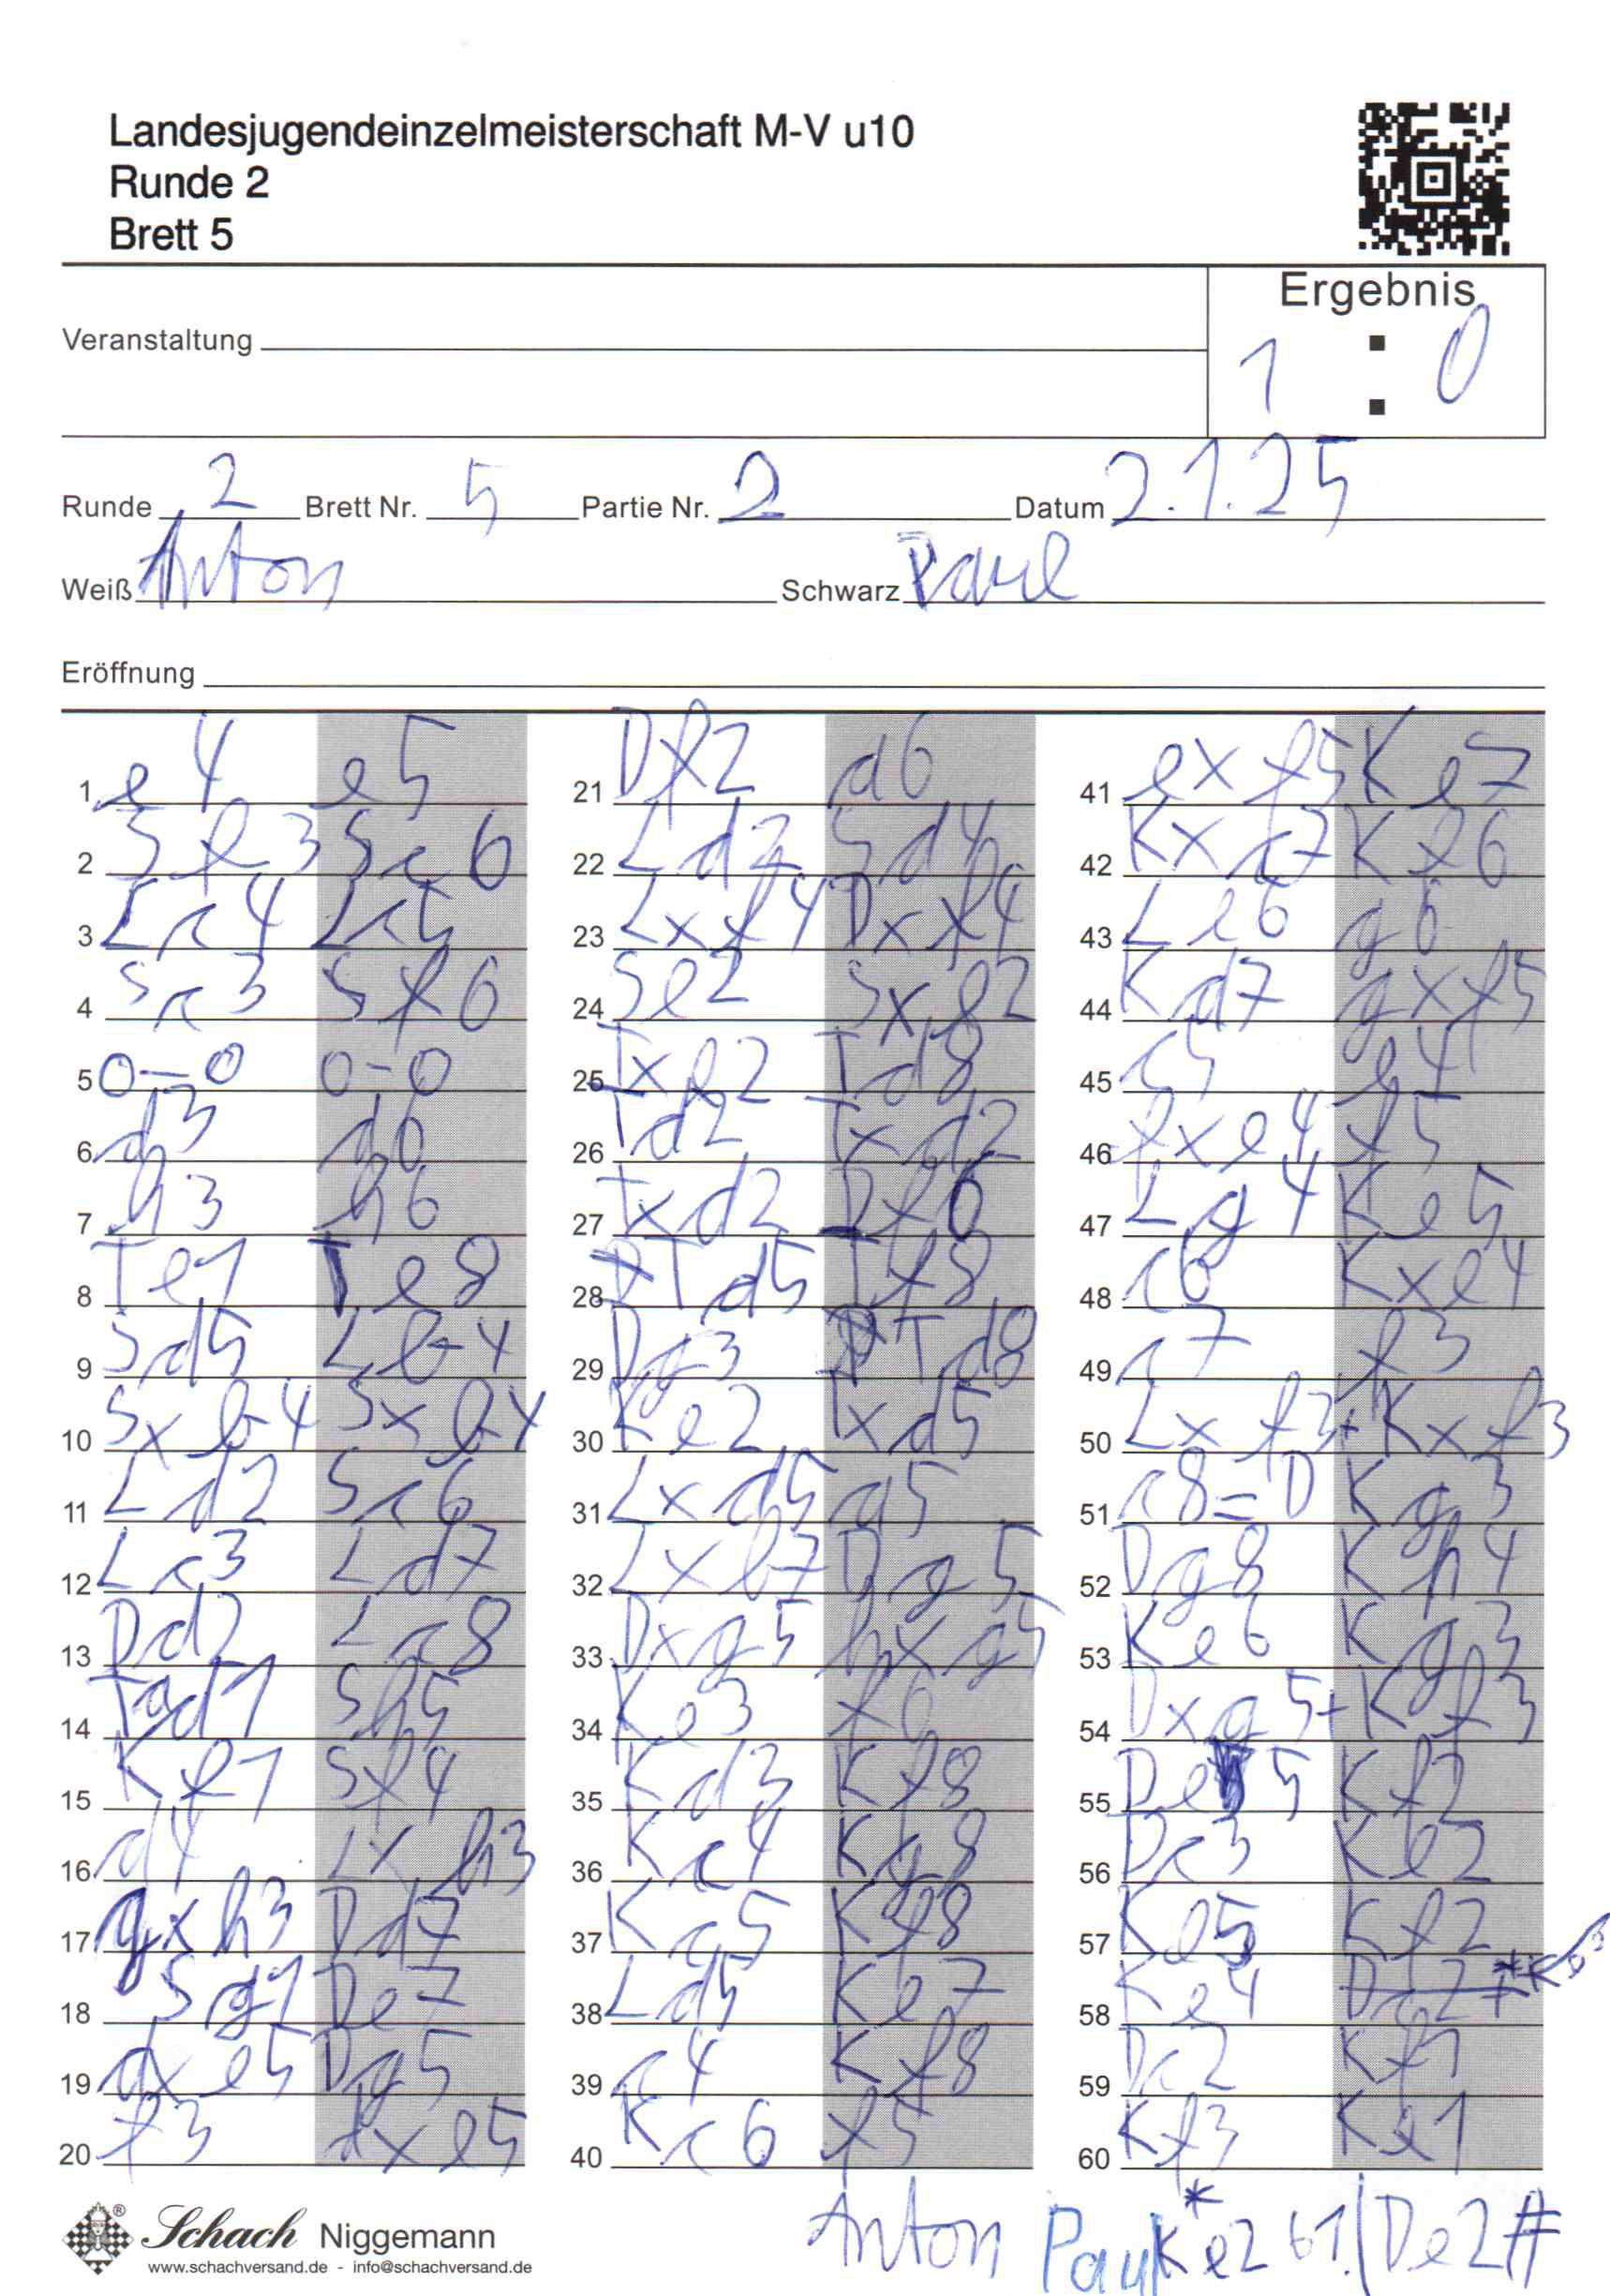 Landesjugendeinzelmeisterschaft M-V u10
Runde 2
Brett 5
Ergebnis
1 : 0
Veranstaltung
Runde 2 Brett Nr. 5 Partie Nr. 2 Datum 2.1.25
Weiß Anton Schwarz Paul
Eröffnung
1 e4 e5
2 Sf3 Sc6
3 Lc4 Lc5
4 Sc3 Sf6
5 0-0 0-0
6 d3 d6
7 h3 h6
8 Te1 Te8
9 Sd5 Lb4
10 Sxb4 Sxb4
11 Ld2 Sc6
12 Lc3 Ld7
13 Dd2 Lc8
14 Tad1 Sh5
15 Kf1 Sf4
16 d4 Lxh3
17 gxh3 Dd7
18 Sg1 De7
19 dxe5 Dg5
20 f3 dxe5
21 Df2 d6
22 Ld2 Sd4
23 Lxf4 Dxf4
24 Se2 Sxe2
25 Txe2 Td8
26 Td2 Txd2
27 Txd2 Df6
28 Td5 Tf8
29 Dg3 Td8
30 Ke2 Txd5
31 Lxd5 a5
32 Lxb7 Dg5
33 Dxg5 hxg5
34 Ke3 f6
35 Kd3 Kf8
36 Kc4 Kg8
37 Kc5 Kf8
38 Ld5 Ke7
39 c4 Kf8
40 Kc6 f5
41 exf5 Ke7
42 Kxc7 Kf6
43 Le6 g6
44 Kd7 gxf5
45 c5 e4
46 fxe4 f5
47 Lg4 Ke5
48 c6 Kxe4
49 c7 f3
50 Lxf3+ Kxf3
51 c8=D Kg3
52 Dg8 Kh4
53 Ke6 Kg3
54 Dxg5+ Kf3
55 De5 Kf2
56 Dc3 Ke2
57 Ke5 Kf2
58 Ke4
59 Dc2 Kf1
60 Kf3 Ke1
Schach Niggemann
www.schachversand.de - info@schachversand.de
Anton Paul * Ke2 61./De2#